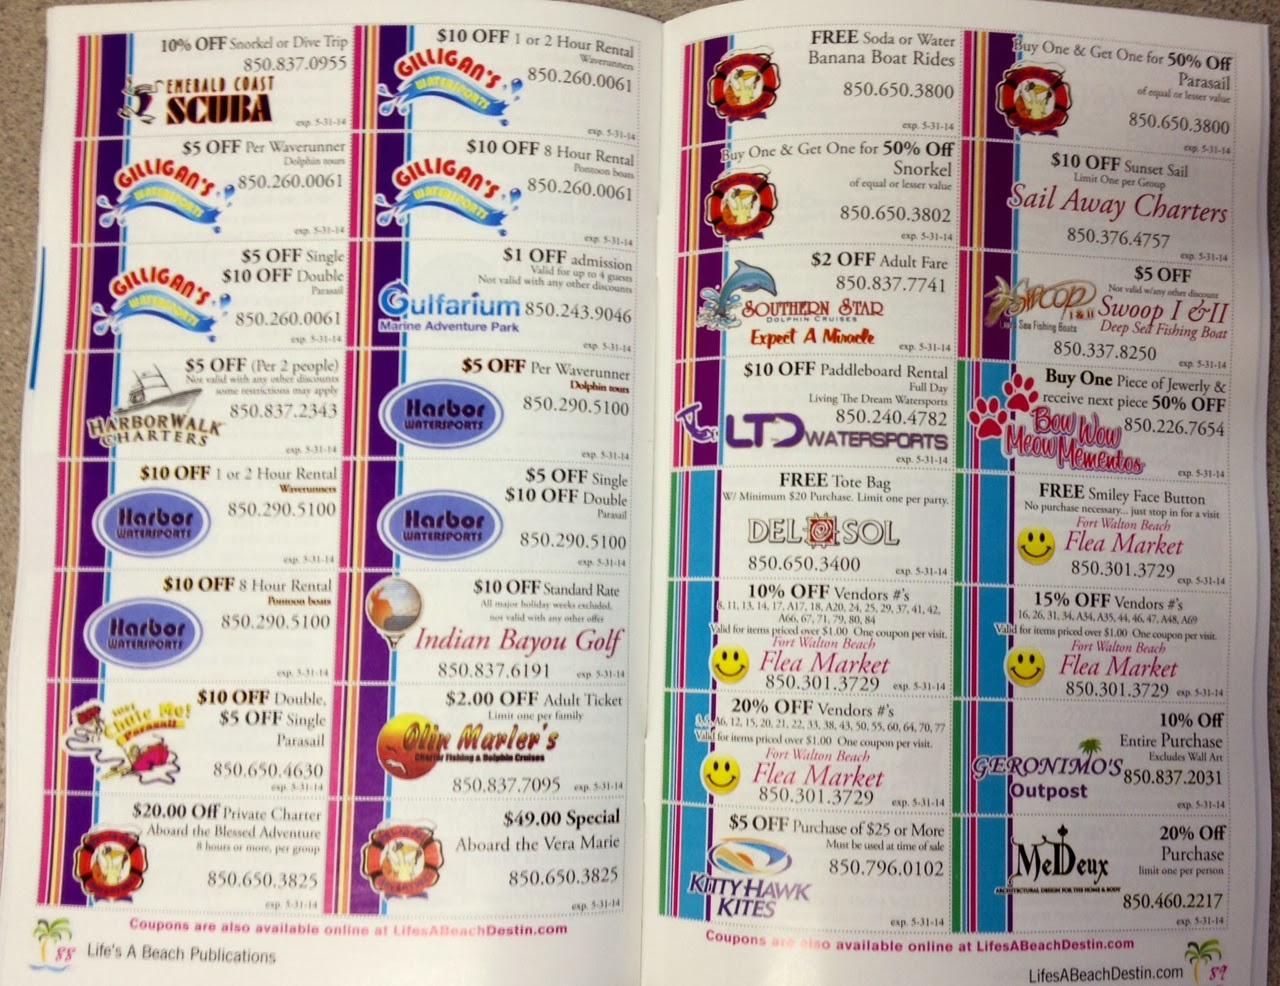 10% OFF Snorkel or Dive Trip
850.837.0955
EMERALD COAST
SCUBA
exp. 5-31-14
$10 OFF 1 or 2 Hour Rental
Waverunners
GILLIGAN'S
WATERSPORTS
850.260.0061
exp. 5-31-14
$5 OFF Per Waverunner
Dolphin tours
GILLIGAN'S
WATERSPORTS
850.260.0061
exp. 5-31-14
$10 OFF 8 Hour Rental
Pontoon boats
GILLIGAN'S
WATERSPORTS
850.260.0061
exp. 5-31-14
$5 OFF Single
$10 OFF Double
Parasail
GILLIGAN'S
WATERSPORTS
850.260.0061
exp. 5-31-14
$1 OFF admission
Valid for up to 4 guests
Not valid with any other discounts
Gulfarium
Marine Adventure Park
850.243.9046
exp. 5-31-14
$5 OFF (Per 2 people)
Not valid with any other discounts
some restrictions may apply
850.837.2343
HARBORWALK
CHARTERS
exp. 5-31-14
$5 OFF Per Waverunner
Dolphin tours
Harbor
WATERSPORTS
850.290.5100
exp. 5-31-14
$10 OFF 1 or 2 Hour Rental
Waverunners
Harbor
WATERSPORTS
850.290.5100
exp. 5-31-14
$5 OFF Single
$10 OFF Double
Parasail
Harbor
WATERSPORTS
850.290.5100
exp. 5-31-14
$10 OFF 8 Hour Rental
Pontoon boats
Harbor
WATERSPORTS
850.290.5100
exp. 5-31-14
$10 OFF Standard Rate
All major holiday weeks excluded,
not valid with any other offer
Indian Bayou Golf
850.837.6191
exp. 5-31-14
$10 OFF Double,
$5 OFF Single
Parasail
Just
Chute Me!
Parasail
850.650.4630
exp. 5-31-14
$2.00 OFF Adult Ticket
Limit one per family
Olin Marler's
Charter Fishing & Dolphin Cruises
850.837.7095
exp. 5-31-14
$20.00 Off Private Charter
Aboard the Blessed Adventure
8 hours or more, per group
850.650.3825
exp. 5-31-14
$49.00 Special
Aboard the Vera Marie
850.650.3825
exp. 5-31-14
Coupons are also available online at LifesABeachDestin.com
88 Life's A Beach Publications
FREE Soda or Water
Banana Boat Rides
850.650.3800
exp. 5-31-14
Buy One & Get One for 50% Off
Parasail
of equal or lesser value
850.650.3800
exp. 5-31-14
Buy One & Get One for 50% Off
Snorkel
of equal or lesser value
850.650.3802
exp. 5-31-14
$10 OFF Sunset Sail
Limit One per Group
Sail Away Charters
850.376.4757
exp. 5-31-14
$2 OFF Adult Fare
850.837.7741
SOUTHERN STAR
DOLPHIN CRUISES
Expect A Miracle
exp. 5-31-14
$5 OFF
Not valid w/any other discount
SWOOP
I & II
Sea Fishing Boats
Swoop I & II
Deep Sea Fishing Boat
850.337.8250
exp. 5-31-14
$10 OFF Paddleboard Rental
Full Day
Living The Dream Watersports
850.240.4782
LTD WATERSPORTS
exp. 5-31-14
Buy One Piece of Jewerly &
receive next piece 50% OFF
Bow Wow
Meow Mementos
850.226.7654
exp. 5-31-14
FREE Tote Bag
W/ Minimum $20 Purchase. Limit one per party.
DEL SOL
850.650.3400
exp. 5-31-14
FREE Smiley Face Button
No purchase necessary... just stop in for a visit
Fort Walton Beach
Flea Market
850.301.3729
exp. 5-31-14
10% OFF Vendors #'s
8, 11, 13, 14, 17, A17, 18, A20, 24, 25, 29, 37, 41, 42,
A66, 67, 71, 79, 80, 84
Valid for items priced over $1.00 One coupon per visit.
Fort Walton Beach
Flea Market
850.301.3729
exp. 5-31-14
15% OFF Vendors #'s
16, 26, 31, 34, A34, A35, 44, 46, 47, A48, A69
Valid for items priced over $1.00 One coupon per visit.
Fort Walton Beach
Flea Market
850.301.3729
exp. 5-31-14
20% OFF Vendors #'s
A6, 12, 15, 20, 21, 22, 33, 38, 43, 50, 55, 60, 64, 70, 77
Valid for items priced over $1.00 One coupon per visit.
Fort Walton Beach
Flea Market
850.301.3729
exp. 5-31-14
10% Off
Entire Purchase
Excludes Wall Art
GERONIMO'S
Outpost
850.837.2031
exp. 5-31-14
$5 OFF Purchase of $25 or More
Must be used at time of sale
850.796.0102
KITTY HAWK
KITES
exp. 5-31-14
20% Off
Purchase
limit one per person
MeDeux
ARCHITECTURAL DESIGN FOR THE HOME & BODY
850.460.2217
exp. 5-31-14
Coupons are also available online at LifesABeachDestin.com
LifesABeachDestin.com 89